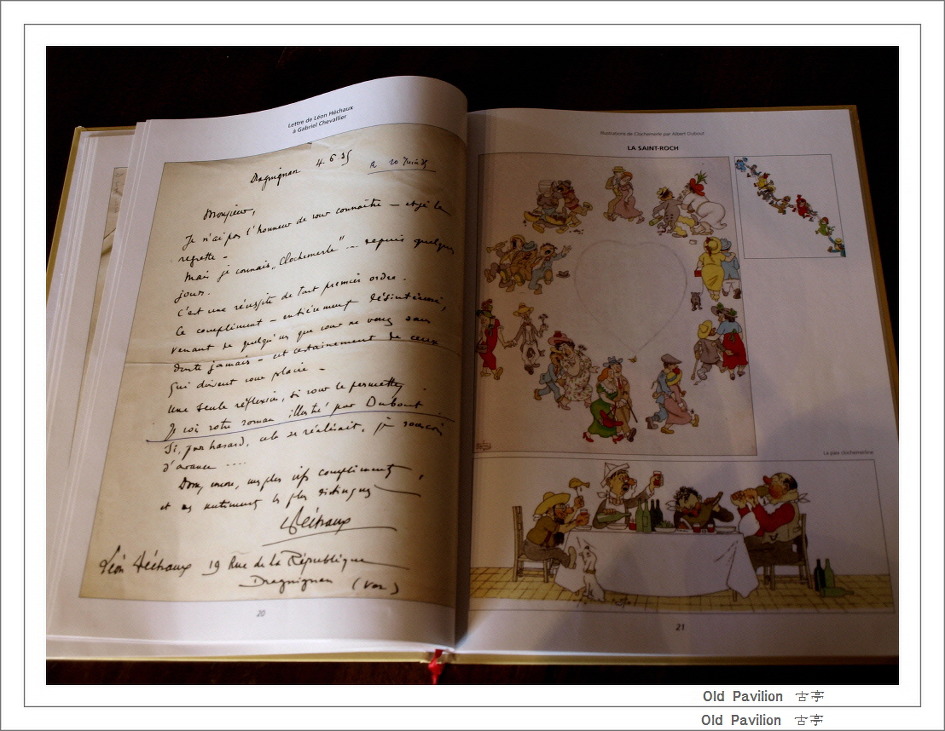 Lettre de Léon Héchaux
à Gabriel Chevallier
Draguignan 4.6.35
Monsieur,
Je n'ai pas l'honneur de vous connaître – et je le
regrette –
Mais je connais „Clochemerle" – depuis quelques
jours.
C'est une réussite de tout premier ordre.
Ce compliment – entièrement désintéressé,
venant de quelqu'un que vous ne verrez sans
doute jamais – est certainement de ceux
qui doivent vous plaire –
Une seule réflexion, si vous le permettez.
Je vois votre roman illustré par Dubout.
Si, par hasard, cela se réalisait, je souscris
d'avance ....
Monsieur, mes plus vifs compliments,
et mes sentiments les plus distingués
LHéchaux
Léon Héchaux 19 Rue de la République
Draguignan (Var)
20
Illustrations de Clochemerle par Albert Dubout
LA SAINT-ROCH
La paix clochemerline
21
Old Pavilion 古亭
Old Pavilion 古亭